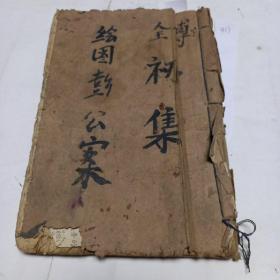 全初集
绘图彭公案